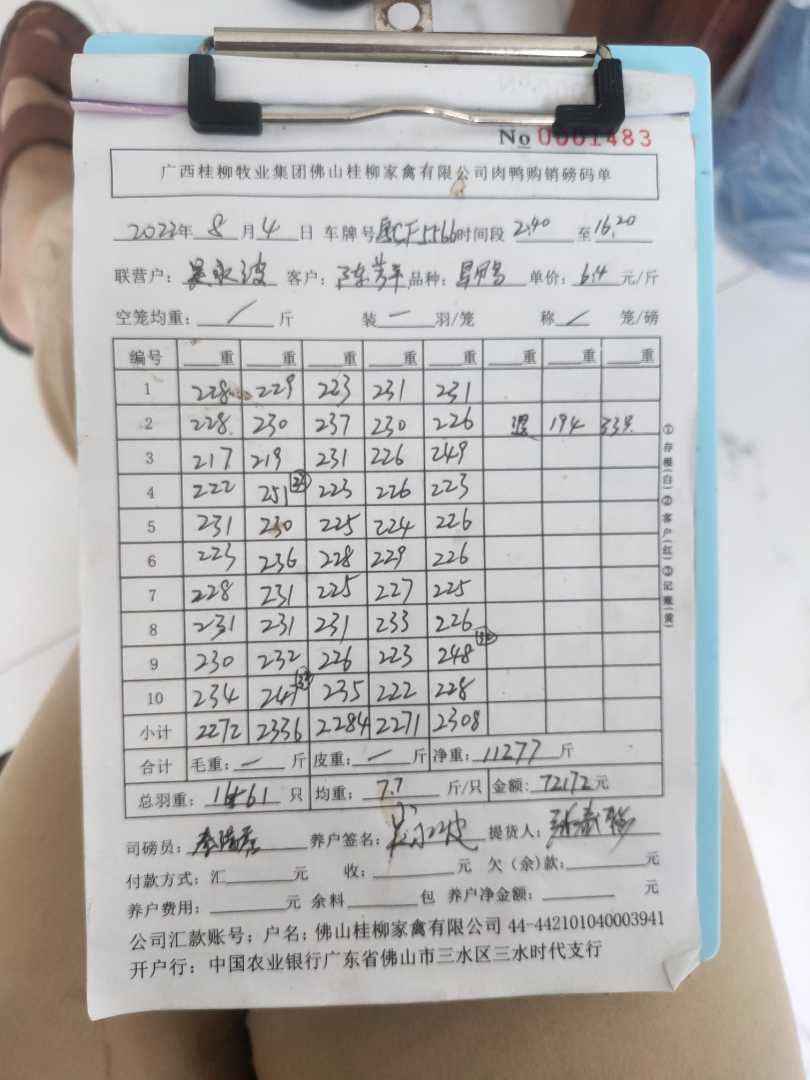 No 0001483
广西桂柳牧业集团佛山桂柳家禽有限公司肉鸭购销磅码单
2023年 8 月 4 日 车牌号 F5566 时间段 2:40 至 16:20
联营户： 客户： 品种： 单价：6.4 元/斤
空笼均重：/ 斤 装 一 羽/笼 称 / 笼/磅
编号 重 重 重 重 重 重 重 重
1 228 229 223 231 231
2 228 230 237 230 226 退 194 33只
3 217 219 231 226 249
4 222 251 223 226 223
5 231 230 225 224 226
6 223 236 228 229 226
7 228 231 225 227 225
8 231 231 231 233 226
9 230 232 226 223 248
10 234 247 235 222 228
小计 2272 2336 2284 2271 2308
合计 毛重：一 斤 皮重：一 斤 净重：11277 斤
总羽重：1461 只 均重：7.7 斤/只 金额：72172元
司磅员： 养户签名： 提货人：
付款方式：汇 元 收： 元 欠（余）款： 元
养户费用： 元 余料 包 养户净金额： 元
公司汇款账号；户名；佛山桂柳家禽有限公司 44-442101040003941
开户行：中国农业银行广东省佛山市三水区三水时代支行
①存根(白)②客户(红)③记账(黄)